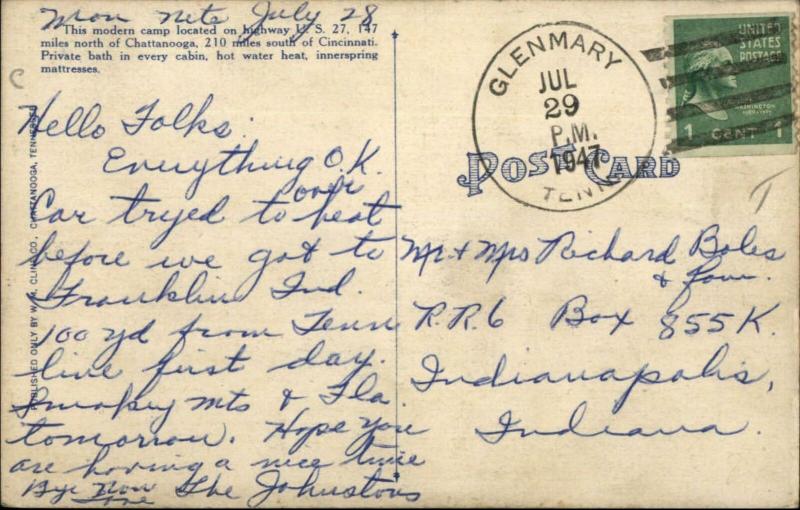 Mon Nite July 28
This modern camp located on highway U. S. 27, 147
miles north of Chattanooga, 210 miles south of Cincinnati.
Private bath in every cabin, hot water heat, innerspring
mattresses.
Hello Folks:
Everything O.K.
over
Car tryed to heat
before we got to
Franklin Ind.
100 yd from Tenn
line first day.
Smokey Mts & Fla.
tomorrow. Hope you
are having a nice time
Bye Now The Johnstons
PUBLISHED ONLY BY W. M. CLINE CO., CHATTANOOGA, TENNESSEE
GLENMARY
JUL
29
P.M.
1947
TENN.
UNITED
STATES
POSTAGE
WASHINGTON
1 CENT 1
POST CARD
Mr + Mrs Richard Boles
& fam.
R.R.6 Box 855K.
Indianapolis,
Indiana.